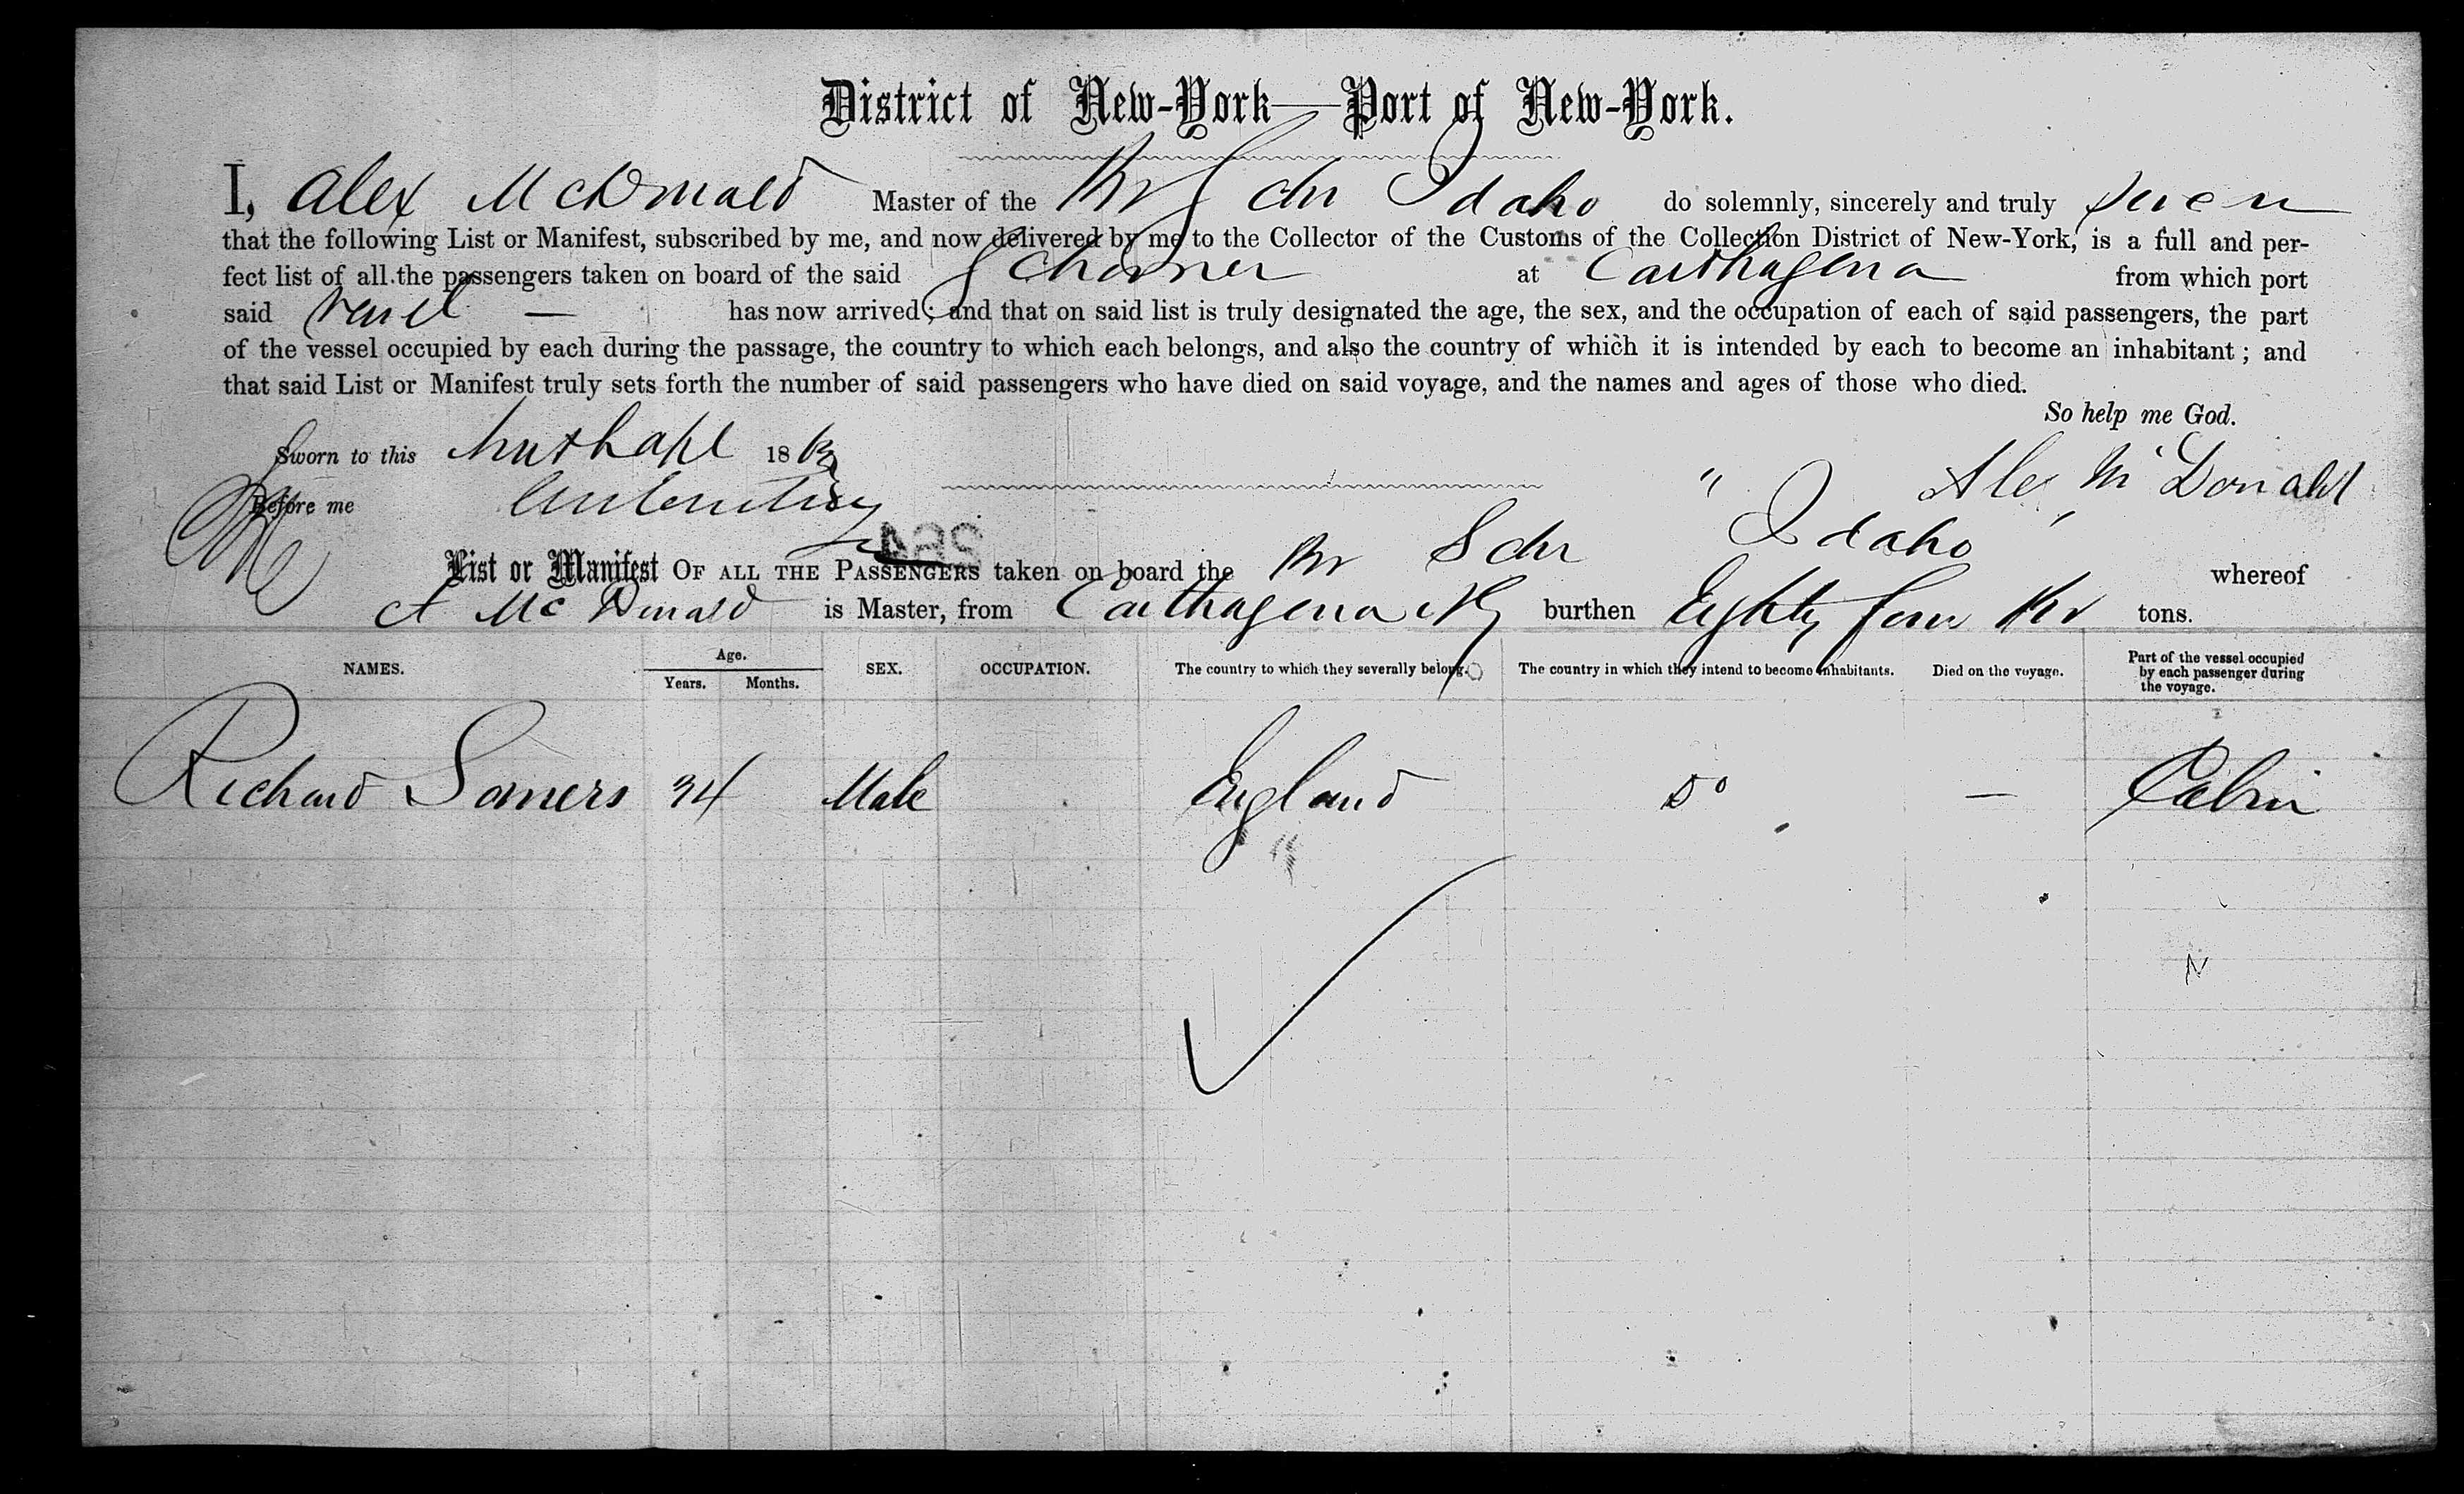 District of New-York—Port of New-York.
I, Alex McDonald Master of the Br Schr Idaho do solemnly, sincerely and truly swear
that the following List or Manifest, subscribed by me, and now delivered by me to the Collector of the Customs of the Collection District of New-York, is a full and per-
fect list of all the passengers taken on board of the said Schooner at Carthagena from which port
said vessel — has now arrived; and that on said list is truly designated the age, the sex, and the occupation of each of said passengers, the part
of the vessel occupied by each during the passage, the country to which each belongs, and also the country of which it is intended by each to become an inhabitant; and
that said List or Manifest truly sets forth the number of said passengers who have died on said voyage, and the names and ages of those who died.
So help me God.
Sworn to this 1863
Alex McDonald
Before me
284
List or Manifest OF ALL THE PASSENGERS taken on board the Br Schr "Idaho" whereof
A McDonald is Master, from Carthagena NG burthen Eighty four Br tons.
NAMES. Age. Years. Months. SEX. OCCUPATION. The country to which they severally belong. The country in which they intend to become inhabitants. Died on the voyage. Part of the vessel occupied by each passenger during the voyage.
Richard Somers 34 Male England Do — Cabin